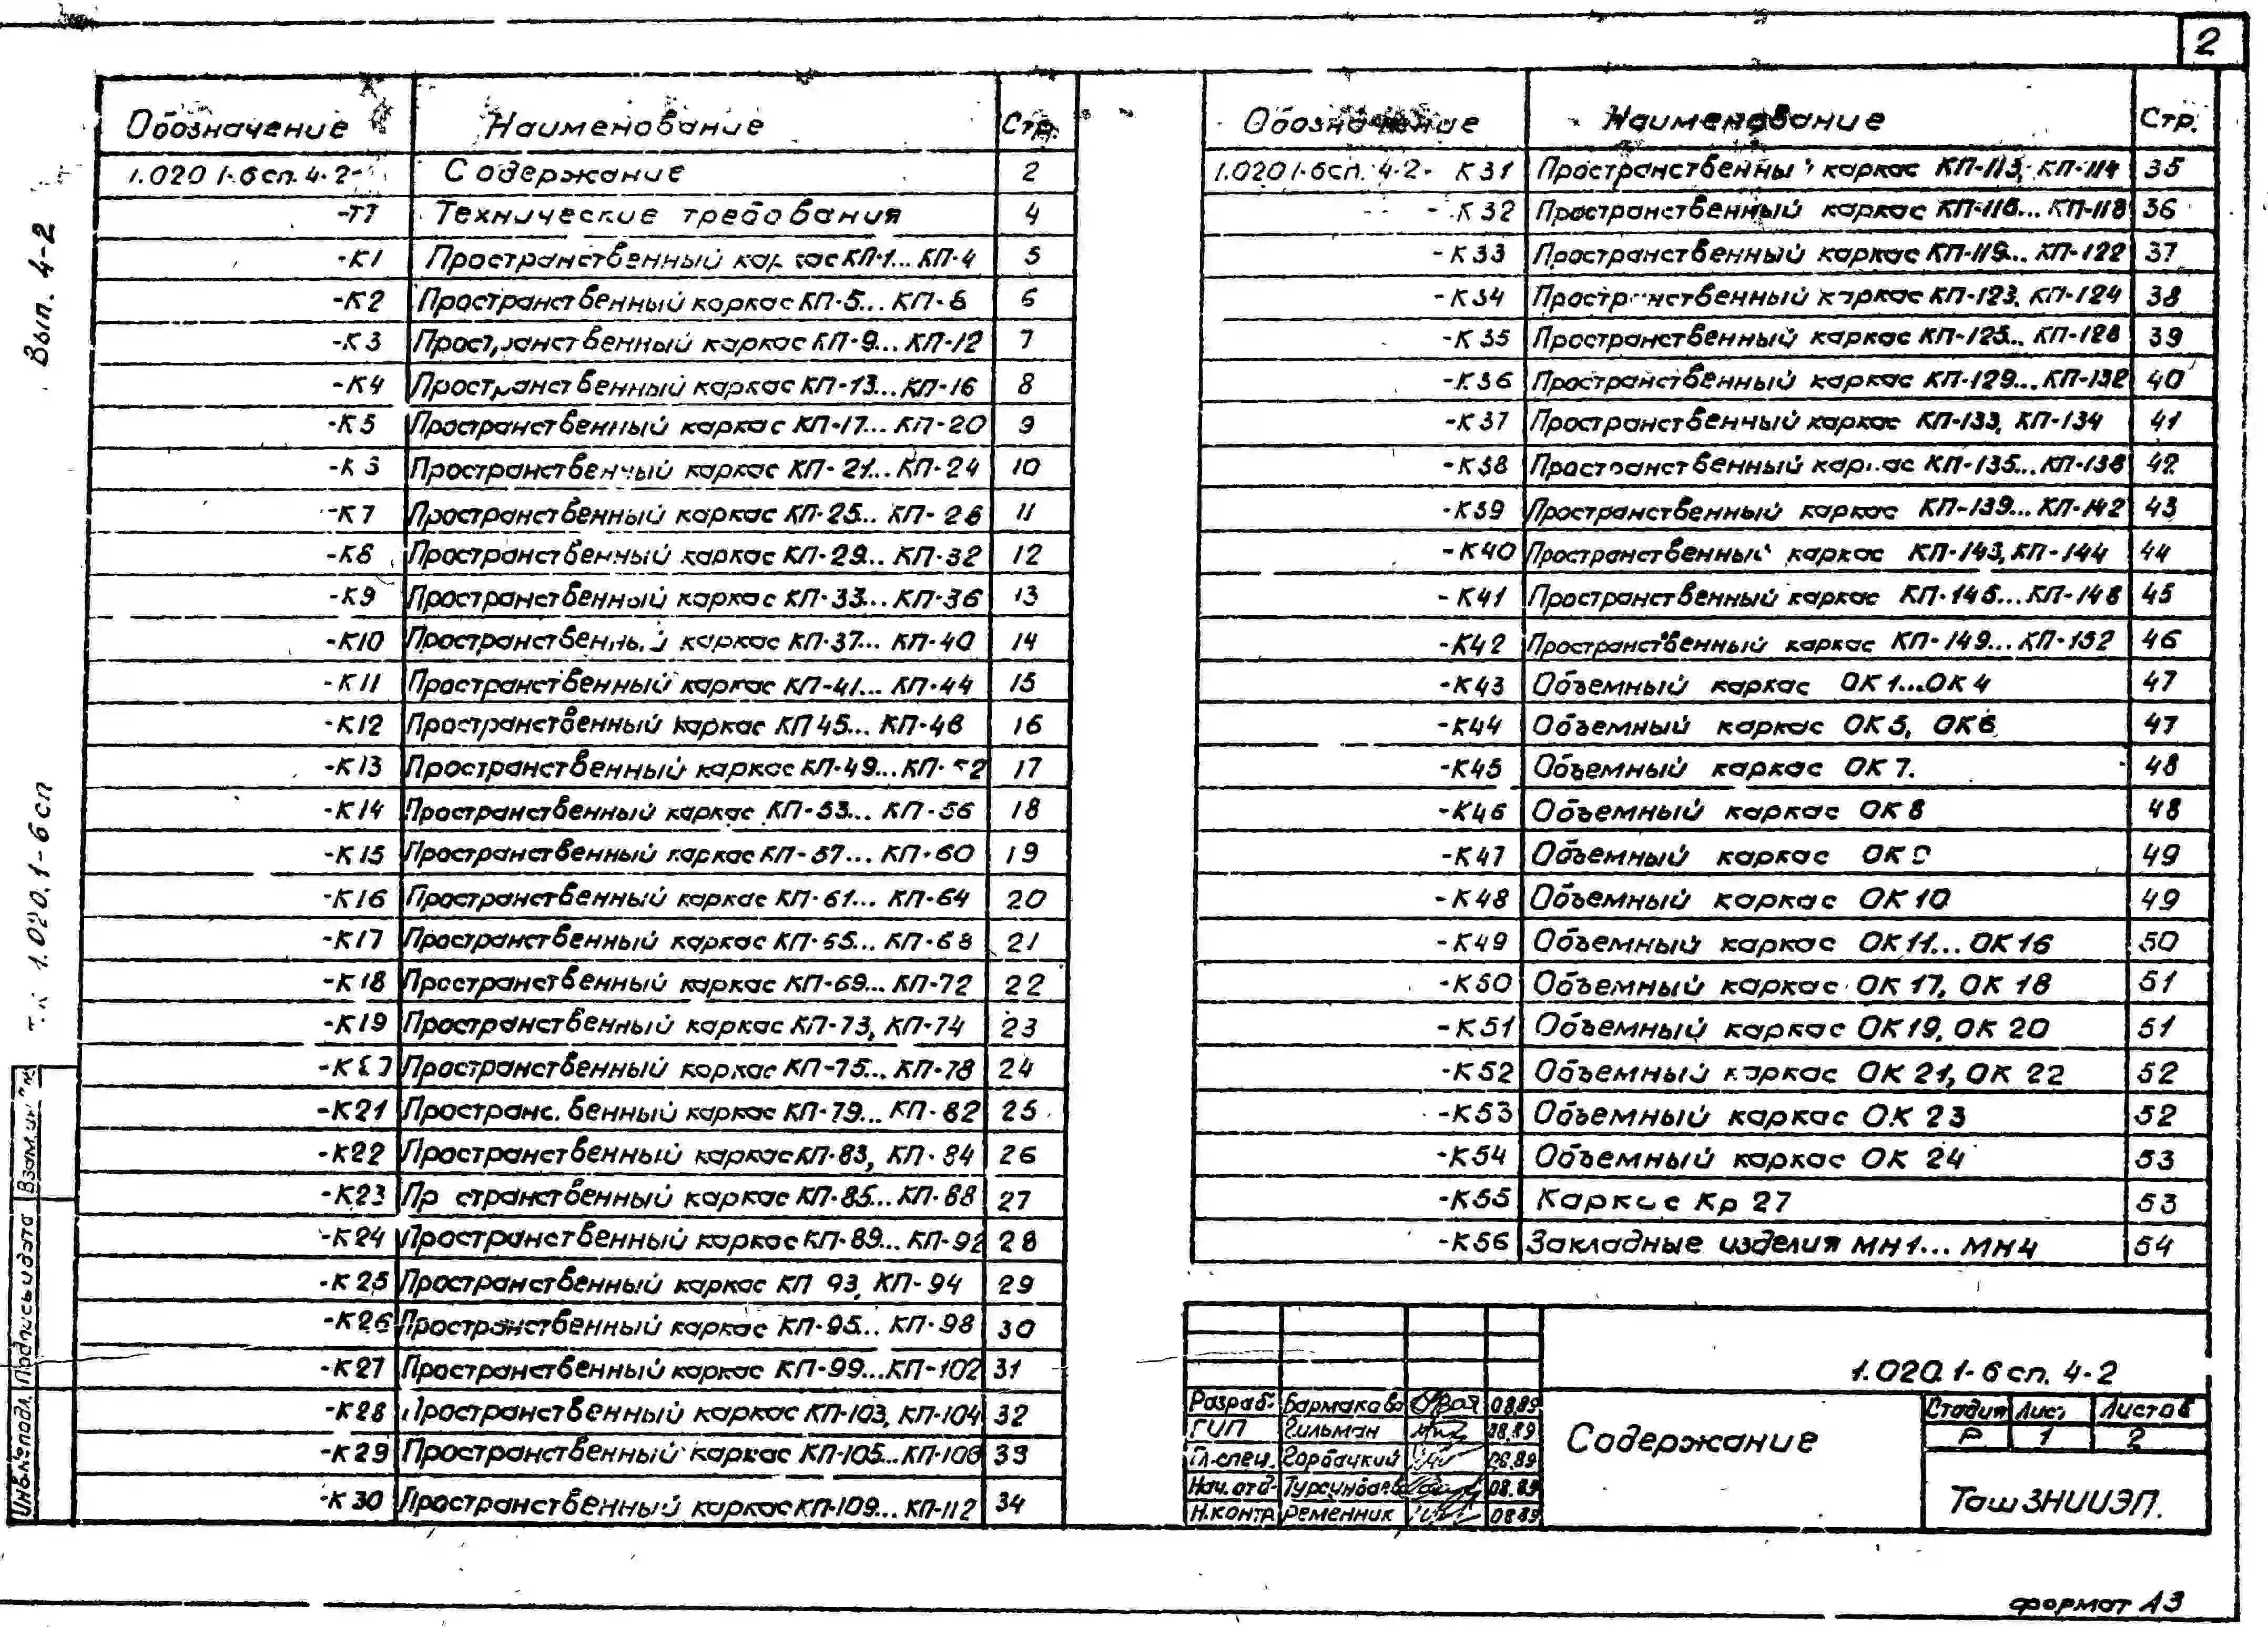 2
Вып. 4-2
1.020.1-6 сп
Взам.инв.№
Подпись и дата
Инв.№подл.
Обозначение Наименование Стр.
1.020 1-6сп. 4-2- Содержание 2
-ТТ Технические требования 4
-К1 Пространственный каркас КП-1... КП-4 5
-К2 Пространственный каркас КП-5... КП-8 6
-К3 Пространственный каркас КП-9... КП-12 7
-К4 Пространственный каркас КП-13... КП-16 8
-К5 Пространственный каркас КП-17... КП-20 9
-К6 Пространственный каркас КП-21... КП-24 10
-К7 Пространственный каркас КП-25... КП-28 11
-К8 Пространственный каркас КП-29... КП-32 12
-К9 Пространственный каркас КП-33... КП-36 13
-К10 Пространственный каркас КП-37... КП-40 14
-К11 Пространственный каркас КП-41... КП-44 15
-К12 Пространственный каркас КП 45... КП-48 16
-К13 Пространственный каркас КП-49... КП-52 17
-К14 Пространственный каркас КП-53... КП-56 18
-К15 Пространственный каркас КП-57... КП-60 19
-К16 Пространственный каркас КП-61... КП-64 20
-К17 Пространственный каркас КП-65... КП-68 21
-К18 Пространственный каркас КП-69... КП-72 22
-К19 Пространственный каркас КП-73, КП-74 23
-К20 Пространственный каркас КП-75... КП-78 24
-К21 Пространственный каркас КП-79... КП-82 25
-К22 Пространственный каркас КП-83, КП-84 26
-К23 Пространственный каркас КП-85... КП-88 27
-К24 Пространственный каркас КП-89... КП-92 28
-К25 Пространственный каркас КП 93, КП-94 29
-К26 Пространственный каркас КП-95... КП-98 30
-К27 Пространственный каркас КП-99... КП-102 31
-К28 Пространственный каркас КП-103, КП-104 32
-К29 Пространственный каркас КП-105... КП-108 33
-К30 Пространственный каркас КП-109... КП-112 34
Обозначение Наименование Стр.
1.020 1-6сп. 4-2- К31 Пространственный каркас КП-113, КП-114 35
-К32 Пространственный каркас КП-115... КП-118 36
-К33 Пространственный каркас КП-119... КП-122 37
-К34 Пространственный каркас КП-123, КП-124 38
-К35 Пространственный каркас КП-125... КП-128 39
-К36 Пространственный каркас КП-129... КП-132 40
-К37 Пространственный каркас КП-133, КП-134 41
-К38 Пространственный каркас КП-135... КП-138 42
-К39 Пространственный каркас КП-139... КП-142 43
-К40 Пространственный каркас КП-143, КП-144 44
-К41 Пространственный каркас КП-145... КП-148 45
-К42 Пространственный каркас КП-149... КП-152 46
-К43 Объемный каркас ОК1...ОК4 47
-К44 Объемный каркас ОК5, ОК6 47
-К45 Объемный каркас ОК 7. 48
-К46 Объемный каркас ОК 8 48
-К47 Объемный каркас ОК 9 49
-К48 Объемный каркас ОК 10 49
-К49 Объемный каркас ОК 11... ОК 16 50
-К50 Объемный каркас ОК 17, ОК 18 51
-К51 Объемный каркас ОК19, ОК 20 51
-К52 Объемный каркас ОК 21, ОК 22 52
-К53 Объемный каркас ОК 23 52
-К54 Объемный каркас ОК 24 53
-К55 Каркас Кр 27 53
-К56 Закладные изделия МН1... МН4 54
1.020.1-6 сп. 4-2
Разраб. Бармакова 08.89
ГИП Гильман 08.89
Гл.спец. Горбацкий 08.89
Нач.отд. Турсунбаев 08.89
Н.контр. Ременник 08.89
Содержание
Стадия Лист Листов
Р 1 2
ТашЗНИИЭП.
формат А3